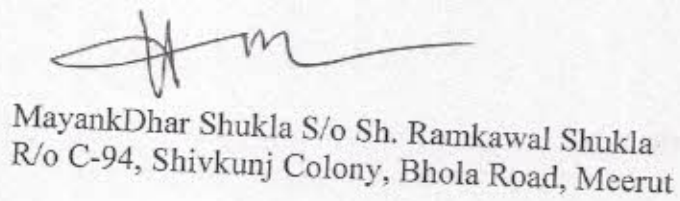 MayankDhar Shukla S/o Sh. Ramkawal Shukla
R/o C-94, Shivkunj Colony, Bhola Road, Meerut